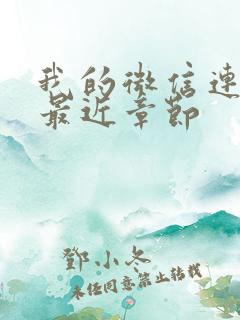 我的微信連
最近章節
鄧小冬
未经同意禁止转载